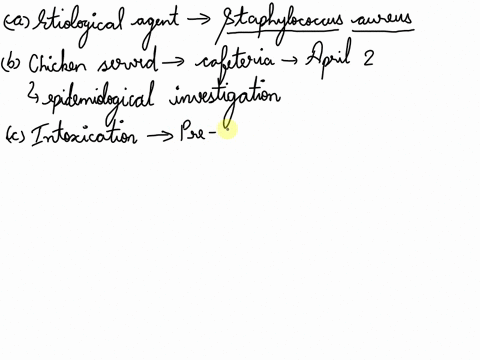 (a) Etiological agent → Staphylococcus aureus
(b) Chicken servrd → cafeteria → April 2
↳ epidemiological investigation
(c) Intoxication → Pre-